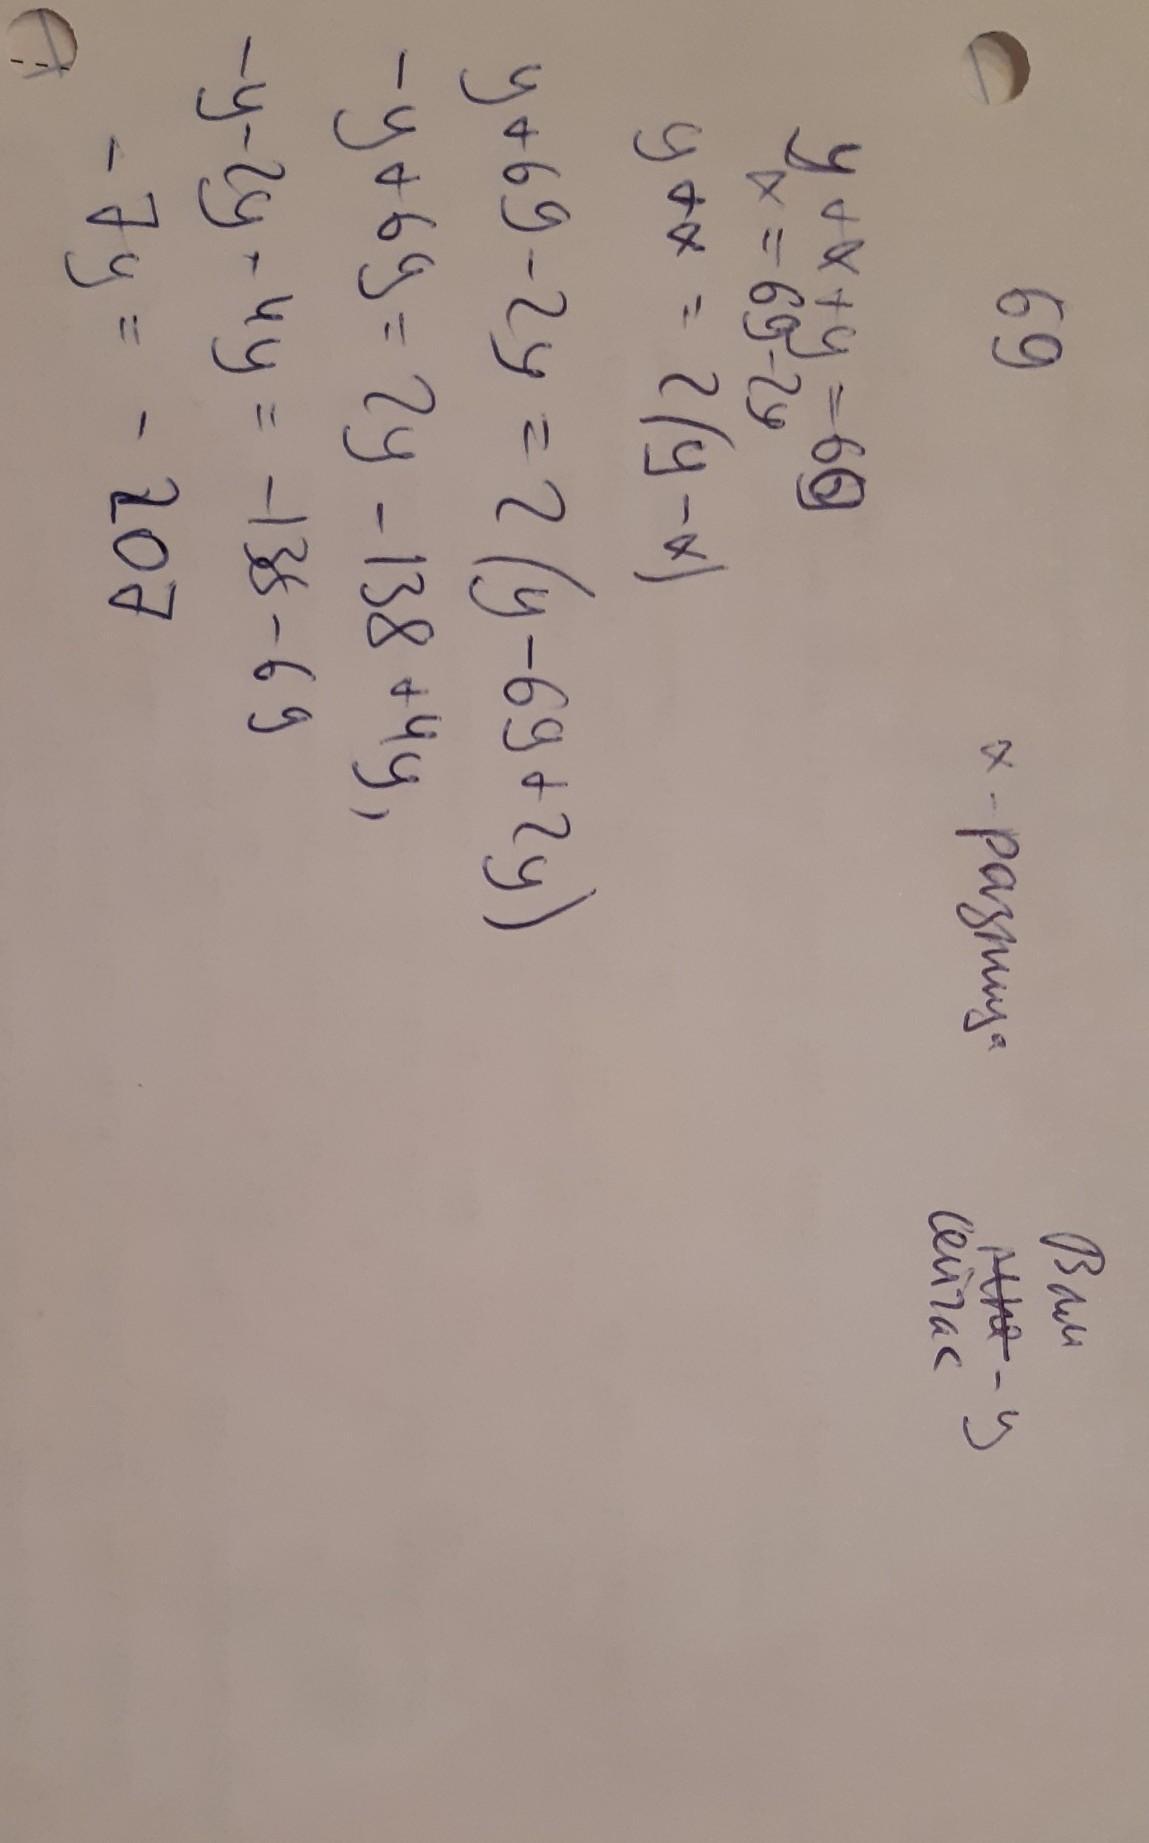 Вам
69
x - разница
- y
сейчас
y + x + y = 69
x = 69 - 2y
y + x = 2(y - x)
y + 69 - 2y = 2(y - 69 + 2y)
-y + 69 = 2y - 138 + 4y,
-y - 2y - 4y = -138 - 69
-7y = -207